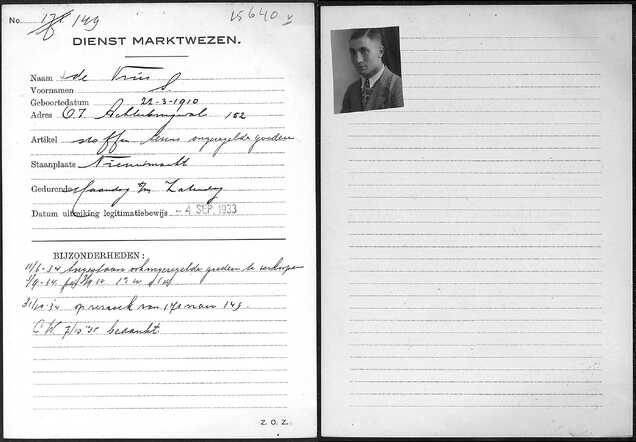 No. 149
15640 v
DIENST MARKTWEZEN.
Naam de Vries
Voornamen S
Geboortedatum 22-3-1910
Adres O.Z. Achterburgwal 152
Artikel stoffen ongeregelde goederen
Staanplaats Nieuwmarkt
Gedurende Maandag t/m Zaterdag
Datum uitreiking legitimatiebewijs - 4 SEP. 1933
BIJZONDERHEDEN:
11/6-34 toegestaan ook ongeregelde goederen te verkopen
31/10-34 op verzoek van 170 naar 149.
C.W. 7/10 '35 bedankt
Z. O. Z.